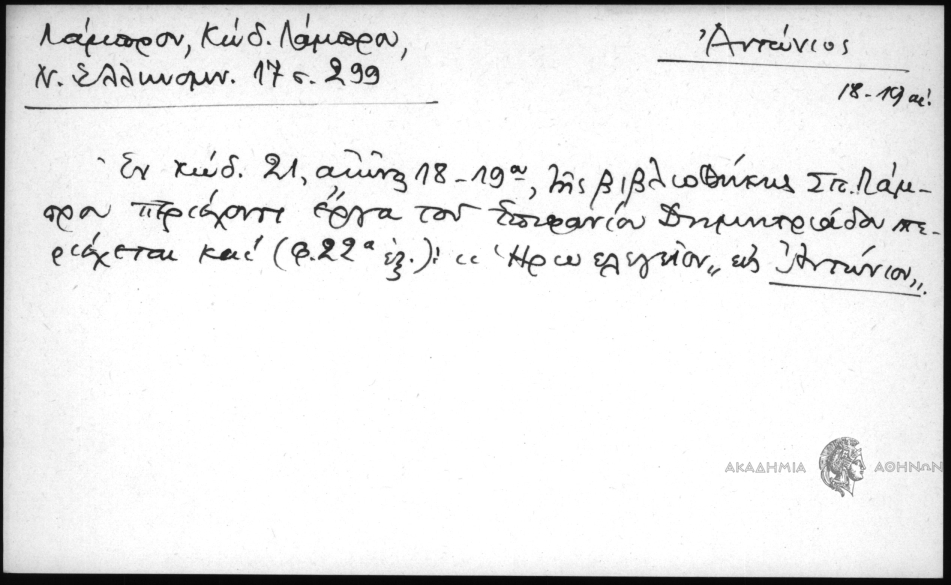 Λάμπρου, Κώδ. Λάμπρου,
Ν. Ελληνομν. 17 σ. 299
Ἀντώνιος
18-19 αἰ.
Ἐν κώδ. 21, αἰῶνος 18-19ου, τῆς βιβλιοθήκης Σπ. Λάμ-
πρου περιέχοντι ἔργα τοῦ Ἐπιφανίου Δημητριάδου πε-
ριέχεται καὶ (φ. 22α ἑξ.): „Ἡρωελεγεῖον„ εἰς Ἀντώνιον„.
ΑΚΑΔΗΜΙΑ ΑΘΗΝΩΝ